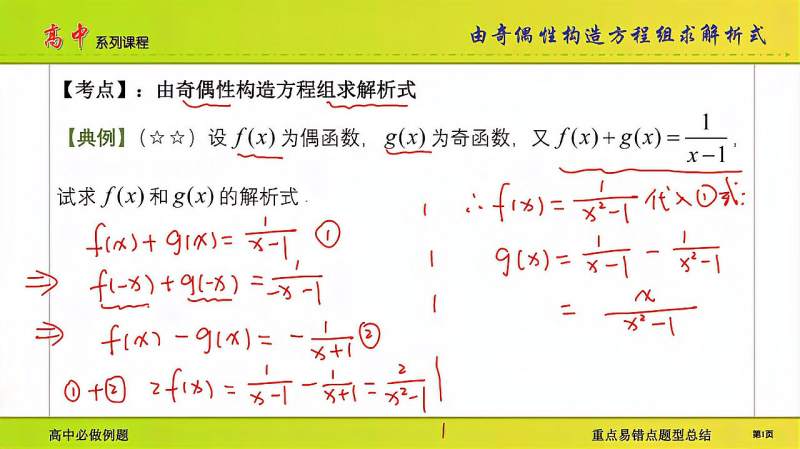 高中 系列课程
由奇偶性构造方程组求解析式
【考点】:由奇偶性构造方程组求解析式
【典例】(☆☆) 设 f(x) 为偶函数, g(x) 为奇函数, 又 f(x)+g(x)=1/(x-1),
试求 f(x) 和 g(x) 的解析式.
f(x)+g(x)=1/(x-1) ①
⇒ f(-x)+g(-x)=1/(-x-1)
⇒ f(x)-g(x)=-1/(x+1) ②
①+② 2f(x)=1/(x-1)-1/(x+1)=2/(x²-1)
∴ f(x)=1/(x²-1) 代入①式:
g(x)=1/(x-1)-1/(x²-1)
=x/(x²-1)
高中必做例题
重点易错点题型总结 第1页